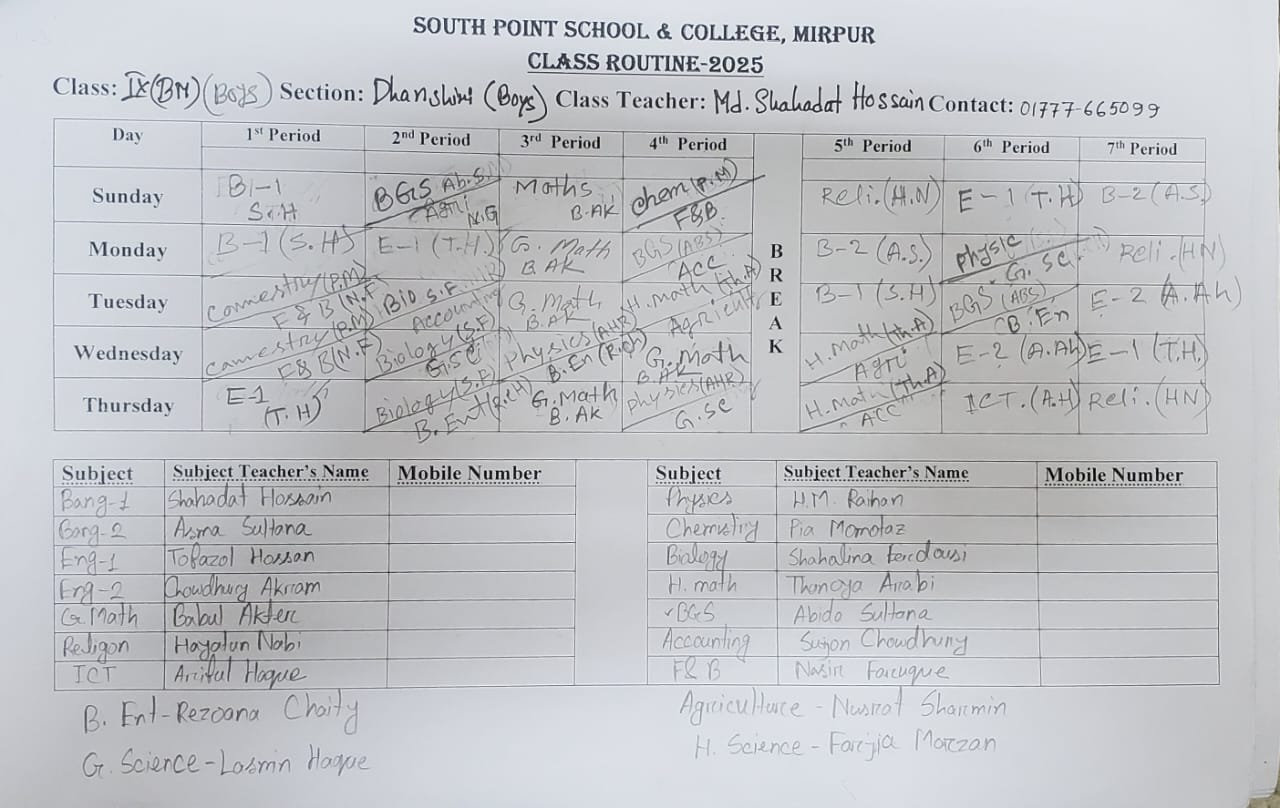 SOUTH POINT SCHOOL & COLLEGE, MIRPUR
CLASS ROUTINE-2025
Class: IX(BN)(Boys) Section: Dhanshiri (Boys) Class Teacher: Md. Shahadat Hossain Contact: 01777-665099
Day 1st Period 2nd Period 3rd Period 4th Period 5th Period 6th Period 7th Period
Sunday B-1 S.H BGS Ab.S. Agri N.G Maths B.AK chem (P.M) F&B Reli. (H.N) E-1 (T.H) B-2 (A.S.)
Monday B-1 (S.H) E-1 (T.H.) G. Math B.AK BGS (ABS) ACC B-2 (A.S.) physic G. Sc. Reli. (HN)
Tuesday (P.M) F & B (N.F) Bio S.F Accounting G. Math B.AK H. math (th.A) Agricult B-1 (S.H) BGS (ABS) B. En E-2 (A. Ah)
Wednesday (P.M) F&B (N.F) Biology (S.F) G.SC physics (AHR) B. En (R.ch) G. Math B.AK H. math (th.A) Agri E-2 (A.Ah) E-1 (T.H.)
Thursday E-1 (T.H) Biology (S.F) B. Ent (R.cH) G. Math B. AK physics (AHR) G. SC H. math (Th.A) ACC ICT. (A.H) Reli. (HN)
BREAK
Subject Subject Teacher's Name Mobile Number
Bang-1 Shahadat Hossain
Bang-2 Asma Sultana
Eng-1 Tofazol Hossan
Eng-2 Chowdhury Akram
G. Math Babul Akter
Religon Hayatun Nabi
ICT Ariful Haque
B. Ent-Rezoana Chaity
G. Science-Lasmin Haque
Subject Subject Teacher's Name Mobile Number
Physics H.M. Raihan
Chemistry Pia Momotaz
Biology Shahalina Ferdausi
H. math Thanoya Arabi
BGS Abida Sultana
Accounting Sujon Chowdhury
F& B Nasir Faruque
Agriciculture - Nusrat Sharmin
H. Science - Farjia Marzan